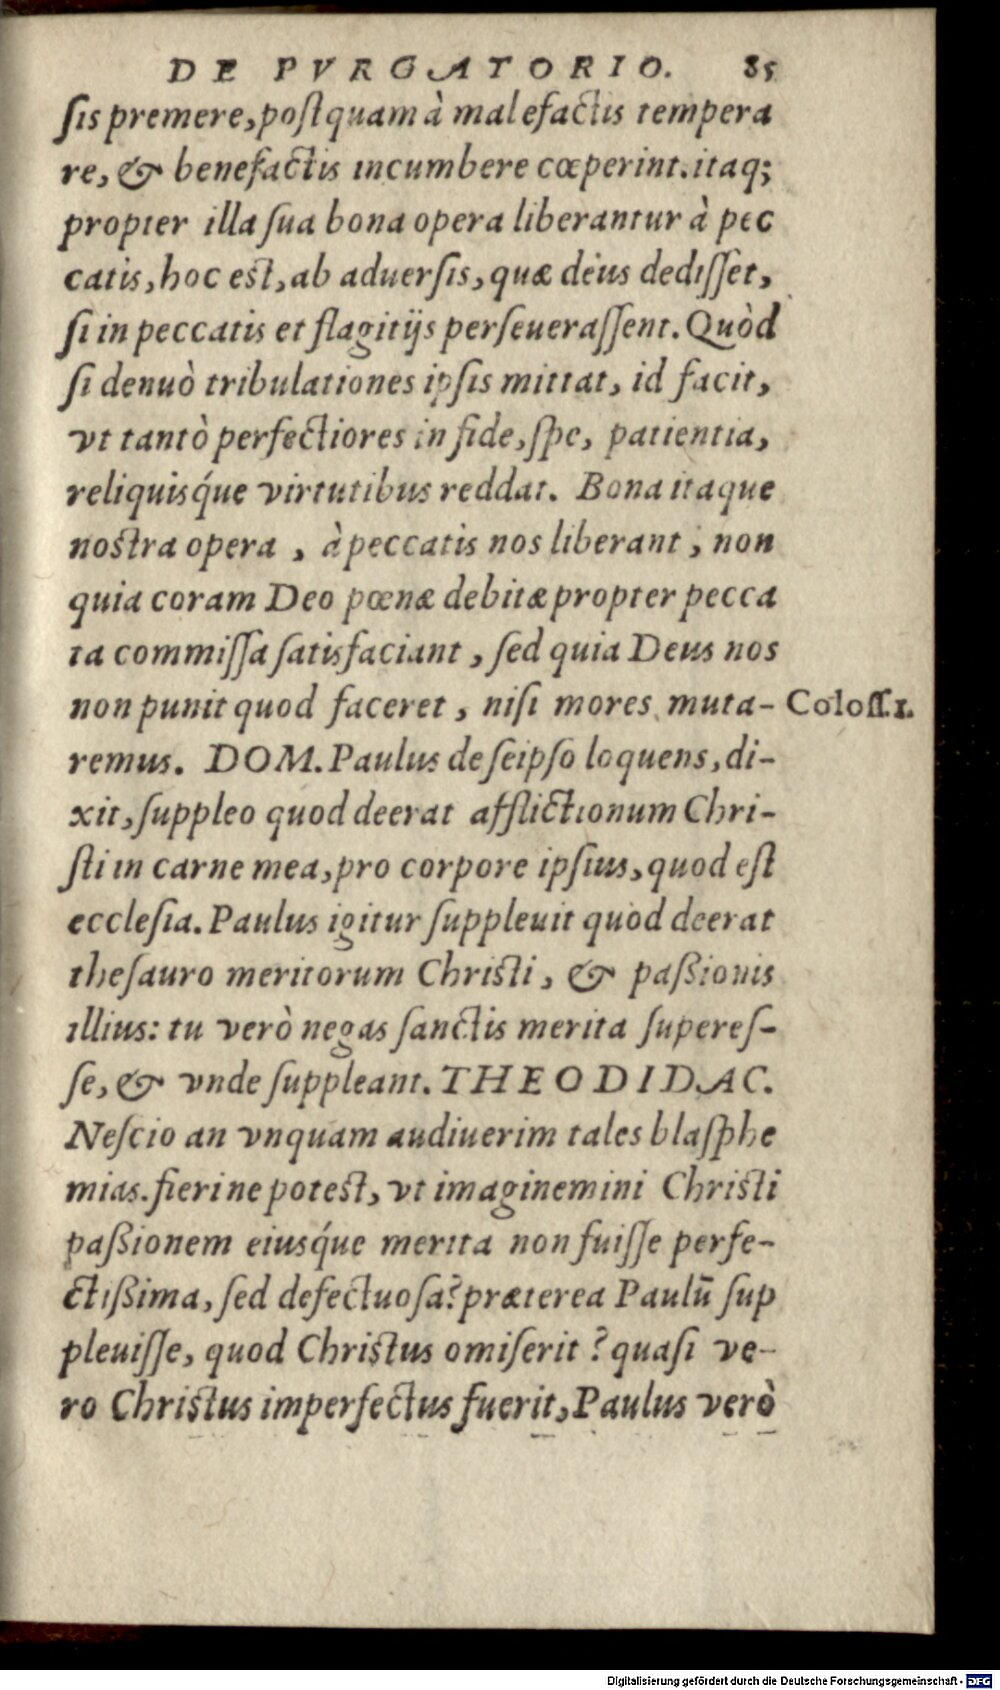 DE PVRGATORIO. 85
ſis premere, poſtquam à malefactis tempera
re, & benefactis incumbere cœperint. itaq;
propter illa ſua bona opera liberantur à pec
catis, hoc est, ab aduerſis, quæ deus dediſſet,
ſi in peccatis et flagitijs perſeueraſſent. Quòd
ſi denuò tribulationes ipſis mittat, id facit,
vt tantò perfectiores in fide, ſpe, patientia,
reliquisq́ue virtutibus reddat. Bona itaque
nostra opera, à peccatis nos liberant, non
quia coram Deo pœnæ debitæ propter pecca
ta commiſſa ſatisfaciant, ſed quia Deus nos
non punit quod faceret, niſi mores muta-
Coloſſ.1.
remus. DOM. Paulus de ſeipſo loquens, di-
xit, ſuppleo quod deerat afflictionum Chri-
ſti in carne mea, pro corpore ipſius, quod eſt
eccleſia. Paulus igitur ſuppleuit quod deerat
theſauro meritorum Christi, & paßionis
illius: tu verò negas ſanctis merita ſupereſ-
ſe, & vnde ſuppleant. THEODIDAC.
Neſcio an vnquam audiuerim tales blaſphe
mias. fierine potest, vt imaginemini Christi
paßionem eiusq́ue merita non fuiſſe perfe-
ctißima, ſed defectuoſa? præterea Paulū ſup
pleuiſſe, quod Christus omiſerit? quaſi ve-
ro Christus imperfectus fuerit, Paulus verò
Digitalisierung gefördert durch die Deutsche Forschungsgemeinschaft - DFG